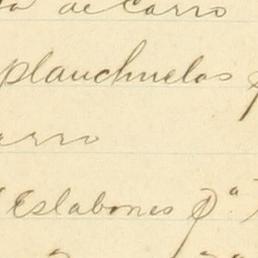 de Carro
planchuelas p
arro
Eslabones p.ª